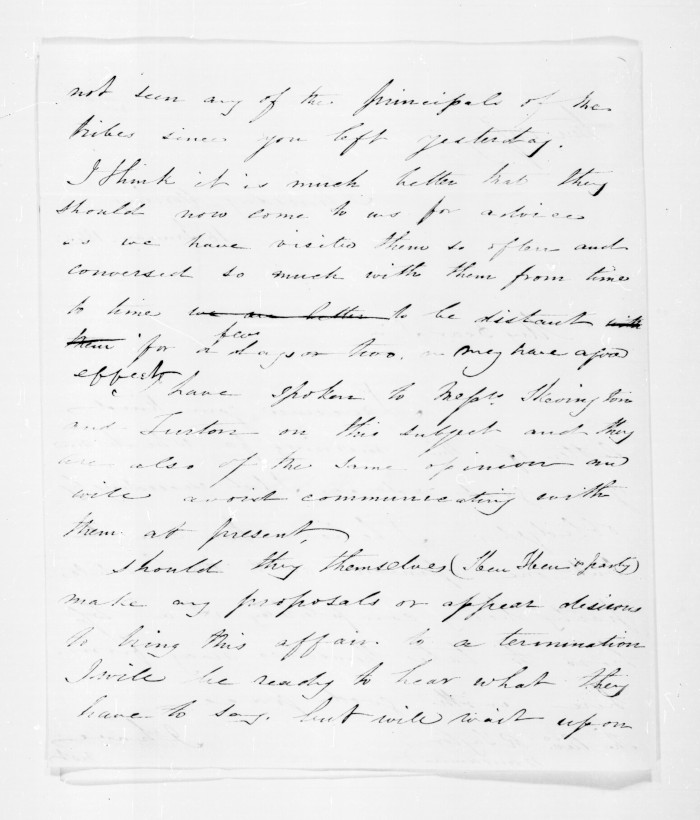 not seen any of the principals of the
tribes since you left yesterday.
I think it is much better that they
should now come to us for advice
as we have visited them so often and
conversed so much with them from time
to time we are better to be distant with
them for a few days or two. may have a good
effect
have spoken to Messrs. Skevington
and Turton on this subject and they
are also of the same opinion and
will avoid communicating with
them at present,
should they themselves (Heu Heu & party)
make any proposals or appear desirous
to bring this affair to a termination
I will be ready to hear what they
have to say. but will wait upon